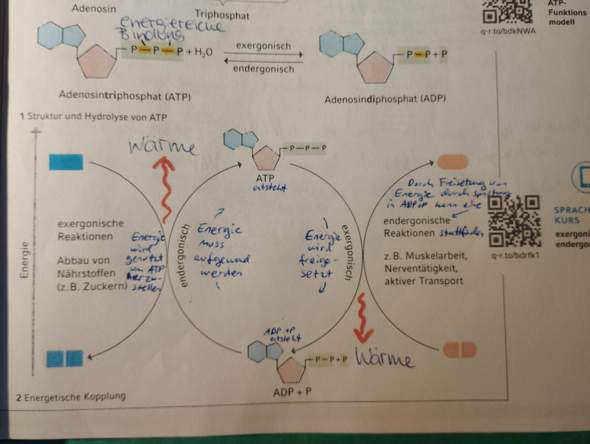 Adenosin
Triphosphat
energiereiche
Bindung
P P P + H₂O
exergonisch
endergonisch
P P + P
Adenosintriphosphat (ATP)
Adenosindiphosphat (ADP)
ATP-
Funktions
modell
q-r.to/bdkNWA
1 Struktur und Hydrolyse von ATP
Energie
Wärme
P P P
ATP
entsteht
exergonische
Reaktionen
Abbau von
Nährstoffen
(z. B. Zuckern)
Energie
wird
genutzt
um ATP
herzu-
stellen
endergonisch
Energie
muss
aufgewand
werden
Energie
wird
freige-
setzt
exergonisch
Durch Freisetzung von
Energie durch Spaltung
in ADP+P kann eine
endergonische
Reaktionen stattfinden
z. B. Muskelarbeit,
Nerventätigkeit,
aktiver Transport
SPRACH
KURS
exergoni
endergo
q-r.to/bdrfk1
ADP + P
entsteht
P P + P
ADP + P
Wärme
2 Energetische Kopplung